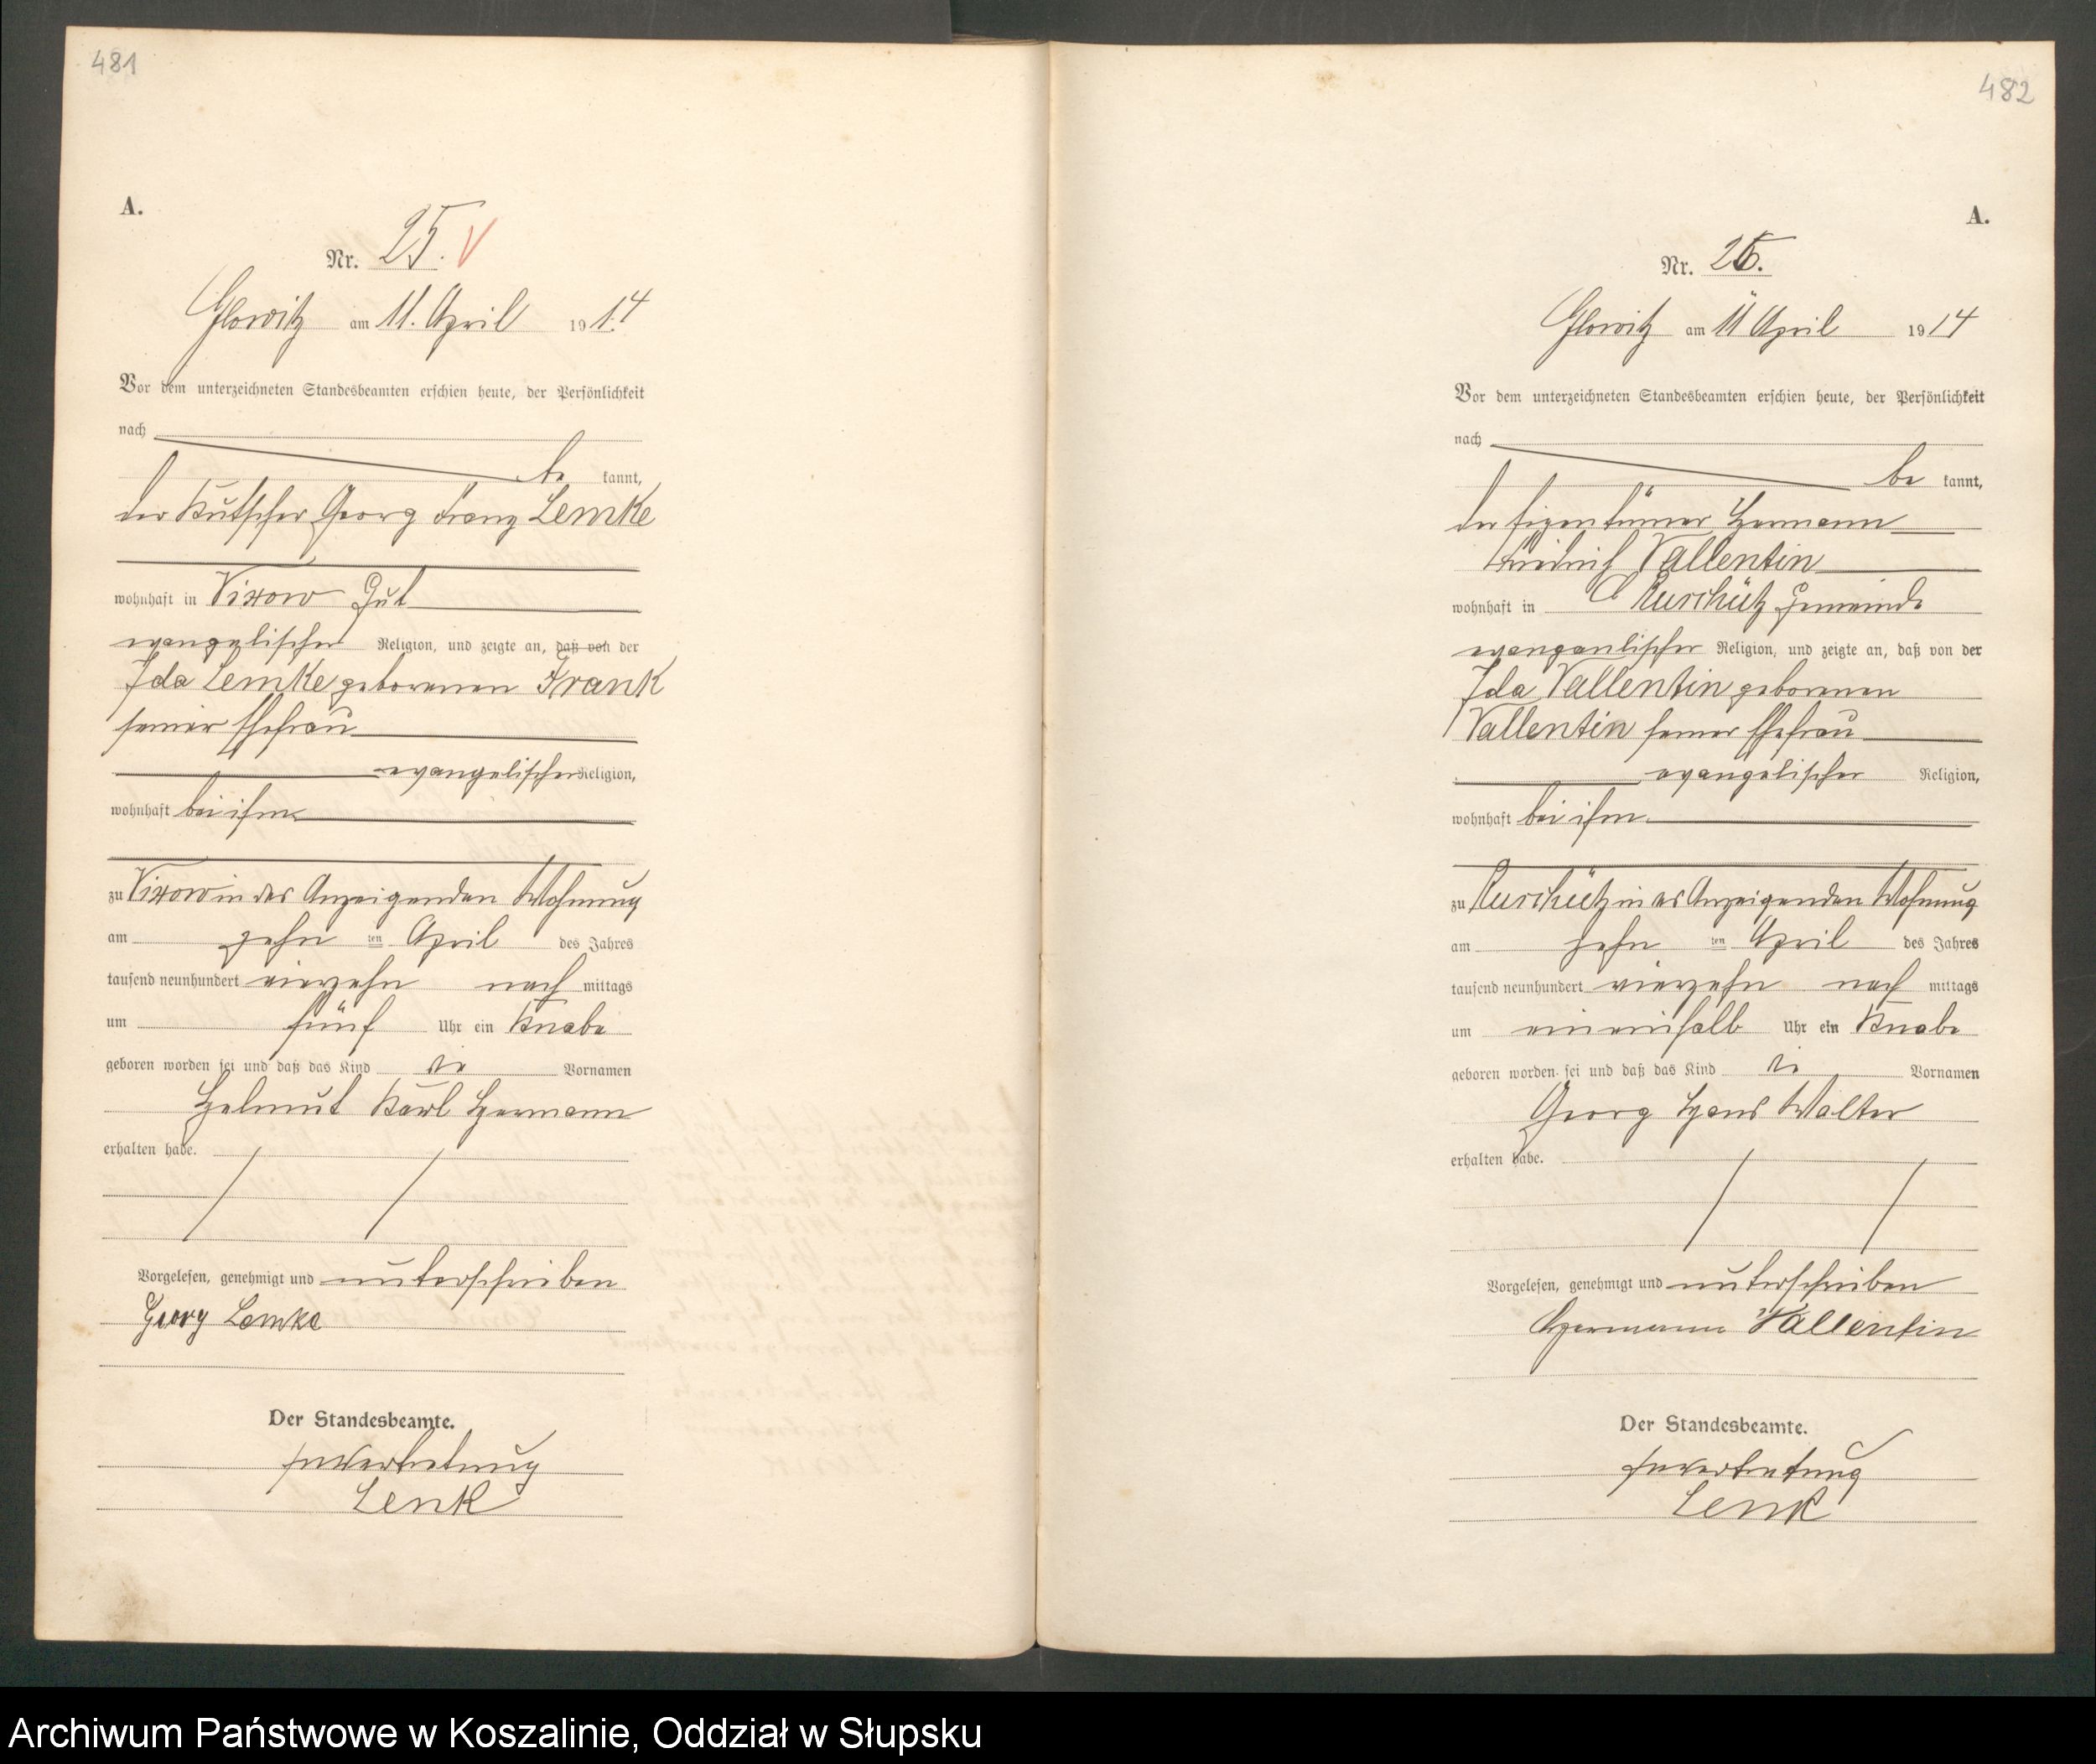 481
A.
Nr. 25.
Glowitz am 11. April 1914
Vor dem unterzeichneten Standesbeamten erschien heute, der Persönlichkeit
nach
be kannt,
der Kutscher Georg Franz Lemke
wohnhaft in Vixow Gut
evangelischer Religion, und zeigte an, daß von der
Ida Lemke geborenen Frank
seiner Ehefrau
evangelischer Religion,
wohnhaft bei ihm
zu Vixow in des Anzeigenden Wohnung
am zehn ten April des Jahres
tausend neunhundert vierzehn nach mittags
um fünf Uhr ein Knabe
geboren worden sei und daß das Kind die Vornamen
Helmut Karl Hermann
erhalten habe.
Vorgelesen, genehmigt und unterschrieben
Georg Lemke
Der Standesbeamte.
In Vertretung
Lenk
482
A.
Nr. 26.
Glowitz am 11 April 1914
Vor dem unterzeichneten Standesbeamten erschien heute, der Persönlichkeit
nach
be kannt,
der Eigentümer Hermann
Friedrich Vallentin
wohnhaft in Ruschütz Gemeinde
Religion, und zeigte an, daß von der
Ida Vallentin geborenen
Vallentin seiner Ehefrau
evangelischer Religion,
wohnhaft bei ihm
zu Ruschütz in des Anzeigenden Wohnung
am zehn ten April des Jahres
tausend neunhundert vierzehn nach mittags
um eineinhalb Uhr ein Knabe
geboren worden sei und daß das Kind die Vornamen
Georg Hans Walter
erhalten habe.
Vorgelesen, genehmigt und unterschrieben
Hermann Vallentin
Der Standesbeamte.
In Vertretung
Lenk
Archiwum Państwowe w Koszalinie, Oddział w Słupsku